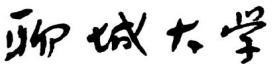 聊城大学